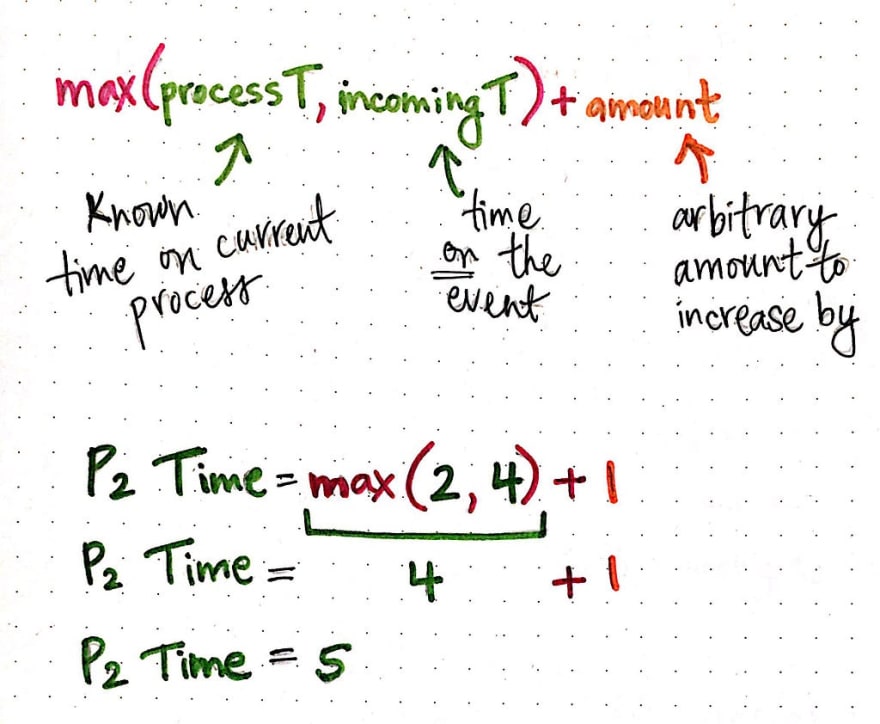 max(processT, incomingT) + amount
Known
time on current
process
time
on the
event
arbitrary
amount to
increase by
P2 Time = max(2, 4) + 1
P2 Time = 4 + 1
P2 Time = 5